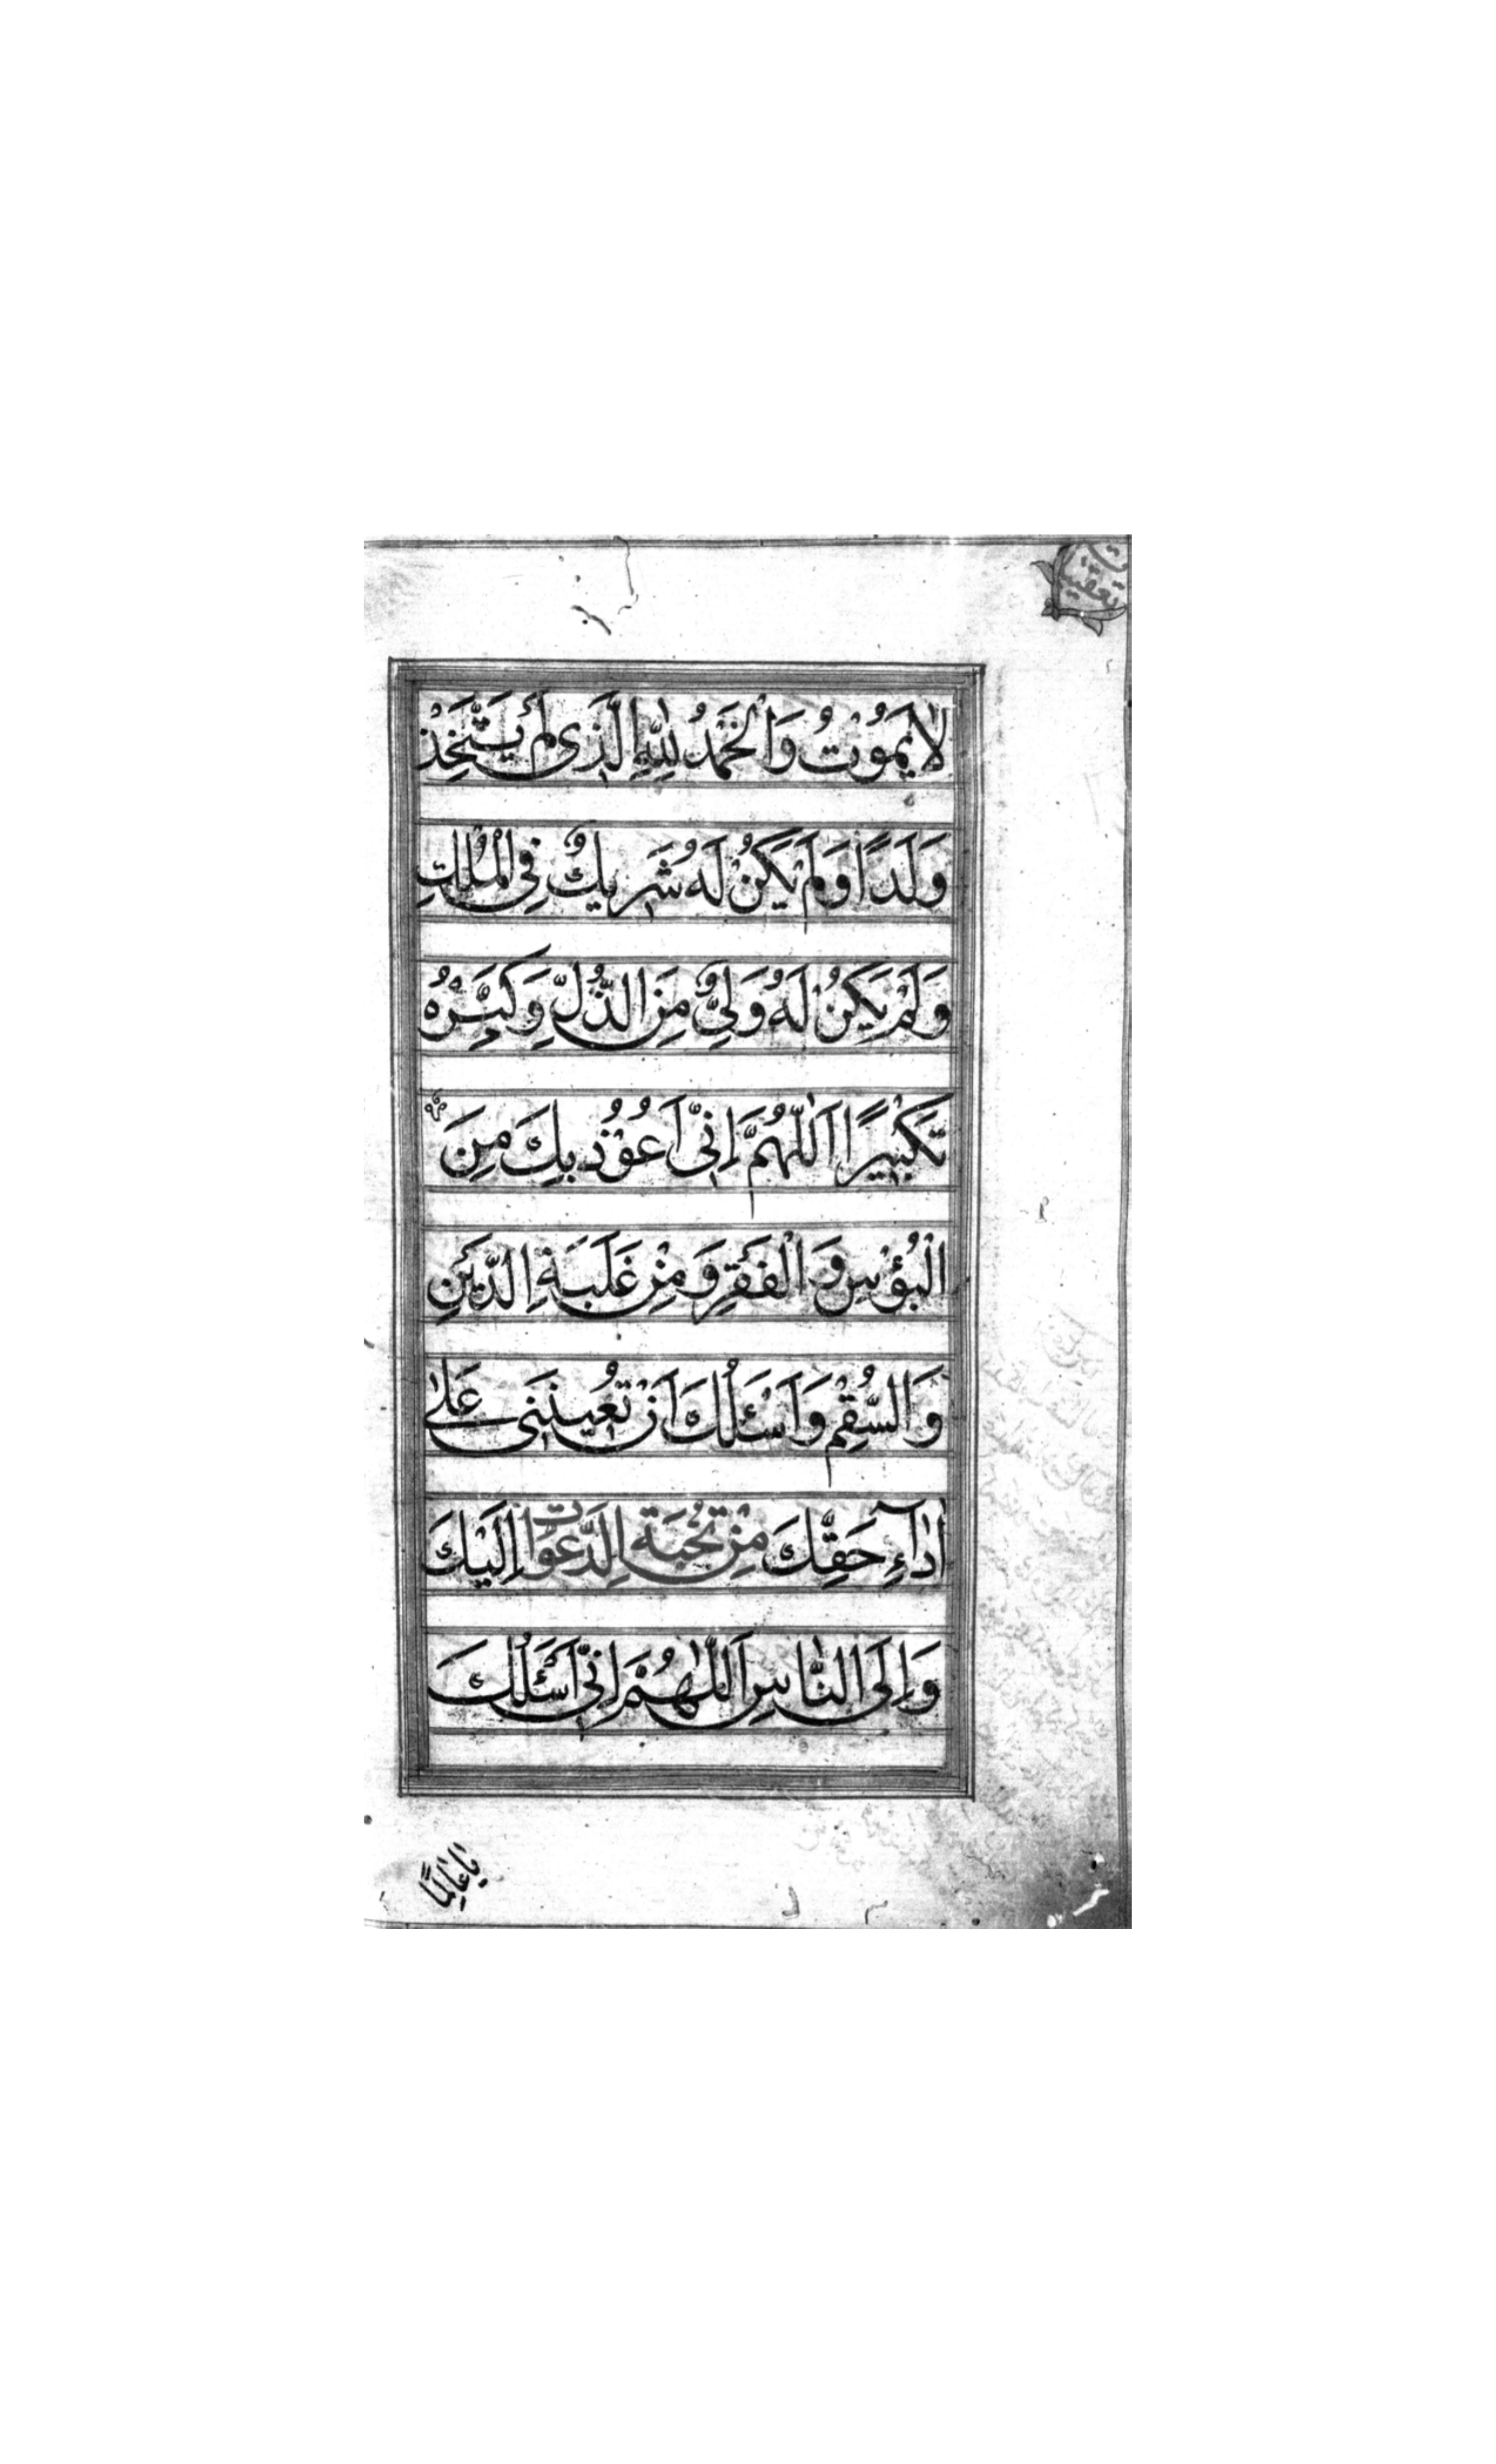 تعقیبات
لاٰ یَمُوْتُ وَالْحَمْدُ لِلّٰهِ الَّذی لَمْ یَتَّخِذْ
وَلَدًا وَلَمْ یَكُنْ لَهُ شَریكٌ فِی الْمُلْكِ
وَلَمْ یَكُنْ لَهُ وَلِیٌّ مِنَ الذُّلِّ وَكَبِّرْهُ
تَكْبیرًا اَللّٰهُمَّ اِنّی اَعُوْذُ بِكَ مِنَ
الْبُؤْسِ وَ الْفَقْرِ وَ مِنْ غَلَبَةِ الدَّیْنِ
وَ السُّقْمِ وَ اَسْئَلُكَ اَنْ تُعینَنی عَلیٰ
اَدٰآءِ حَقِّكَ مِنْ نُخْبَةِ الدَّعَوٰاتِ اِلَیْكَ
وَ اِلَی النّٰاسِ اَللّٰهُمَّ اِنّی اَسْئَلُكَ
یٰا عٰالِمًا